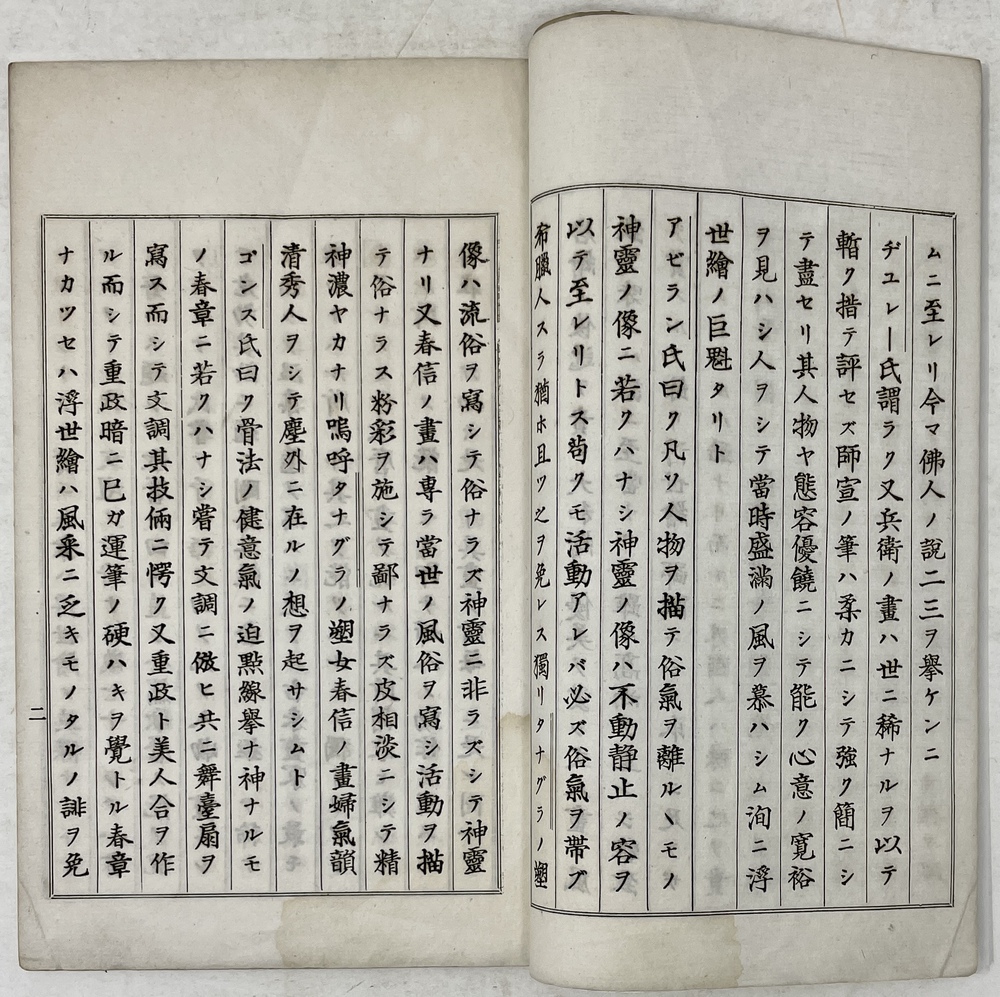 ムニ至レリ今マ佛人ノ說二三ヲ擧ケンニ
ヂユレー氏謂ラク又兵衛ノ畫ハ世ニ稀ナルヲ以テ
暫ク措テ評セズ師宣ノ筆ハ柔カニシテ強ク簡ニシ
テ盡セリ其人物ヤ態容優饒ニシテ能ク心意ノ寬裕
ヲ見ハシ人ヲシテ當時盛滿ノ風ヲ慕ハシム洵ニ浮
世繪ノ巨魁タリト
アゼラン氏曰ク凡ソ人物ヲ描テ俗氣ヲ離ルヽモノ
神靈ノ像ニ若クハナシ神靈ノ像ハ不動静止ノ容ヲ
以テ至レリトス苟クモ活動アレバ必ズ俗氣ヲ帶ブ
希臘人スラ猶ホ且ツ之ヲ免レス獨リタナグラノ塑
像ハ流俗ヲ寫シテ俗ナラズ神靈ニ非ラズシテ神靈
ナリ又春信ノ畫ハ專ラ當世ノ風俗ヲ寫シ活動ヲ描
テ俗ナラス粉彩ヲ施シテ鄙ナラズ皮相淡ニシテ精
神濃ヤカナリ嗚呼タナグラノ塑女春信ノ畫婦氣韻
清秀人ヲシテ塵外ニ在ルノ想ヲ起サシムト
ゴンス氏曰ク骨法ノ健意氣ノ迫點線擧ナ神ナルモ
ノ春章ニ若クハナシ嘗テ文調ニ倣ヒ共ニ舞臺扇ヲ
寫ス而シテ文調其技倆ニ愕ク又重政ト美人合ヲ作
ル而シテ重政暗ニ已ガ運筆ノ硬ハキヲ覺トル春章
ナカツセハ浮世繪ハ風采ニ乏キモノタルノ誹ヲ免
二